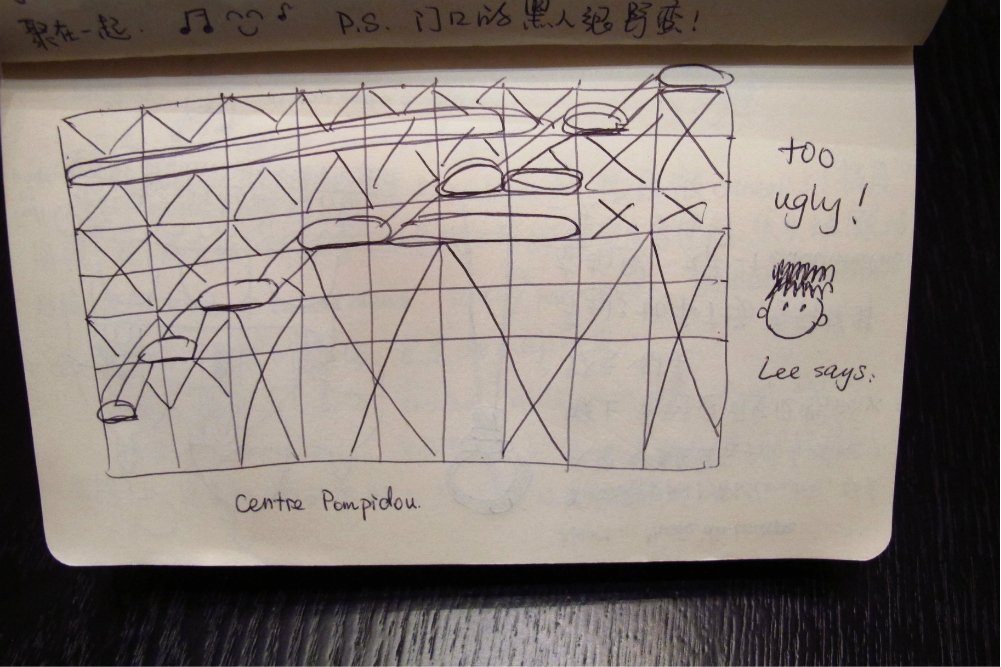 聚在一起. P.S. 门口的黑人很野蛮!
too
ugly!
Lee says.
Centre Pompidou.